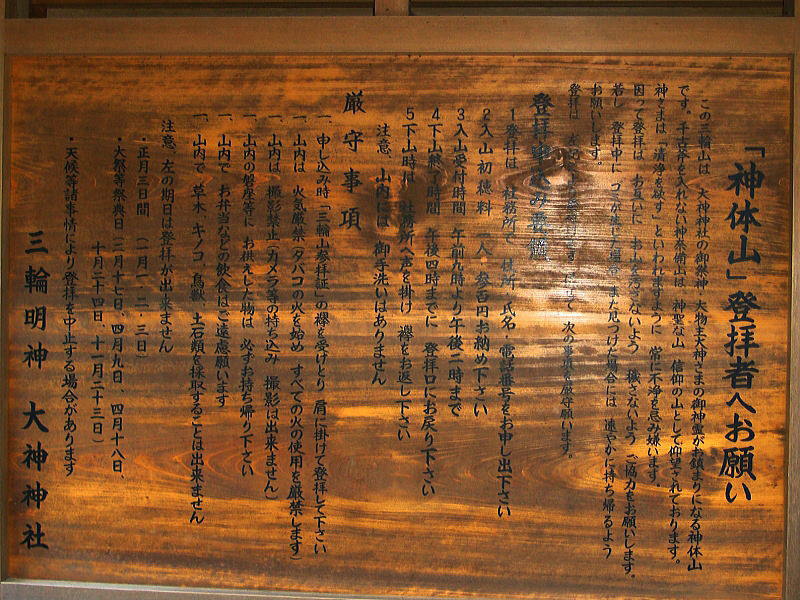 「神体山」登拝者へお願い
この三輪山は 大神神社の御祭神 大物主大神さまの御神霊がお鎮まりになる神体山
です。千古斧を入れない神奈備山は 神聖な山 信仰の山として仰望されております。
神さまは「清浄を尽す」といわれますように 常に不浄を忌み嫌います。
因って登拝は お互いに お山を汚さないよう 穢さないよう ご協力をお願いします。
若し 登拝中に ゴミが生じた場合 また見つけた場合には 速やかに持ち帰るよう
お願いします。
登拝は 次の事項を厳守願います。
登拝申込み要領
1 登拝は 社務所で 住所・氏名・電話番号をお申し出下さい
2 入山初穂料 一人 参百円お納め下さい
3 入山受付時間 午前九時より午後二時まで
4 下山終了時間 午後四時までに 登拝口にお戻り下さい
5 下山時は 社務所へ声を掛け 襷をお返し下さい
注意 山内には 御手洗いはありません
厳守事項
一、申し込み時「三輪山参拝証」の襷を受けとり 肩に掛けて登拝して下さい
一、山内は 火気厳禁(タバコの火を始め すべての火の使用を厳禁します)
一、山内は 撮影禁止(カメラ等の持ち込み 撮影は出来ません)
一、山内の磐座等に お供えした物は 必ずお持ち帰り下さい
一、山内で お弁当などの飲食はご遠慮願います
一、山内で 草木 キノコ 鳥獣 土石類を採取することは出来ません
注意 左の期日は登拝が出来ません
・正月三日間 (一月一・二・三日)
・大祭等祭典日(二月十七日、四月九日 四月十八日、
十月二十四日、十一月二十三日)
・天候等諸事情により登拝を中止する場合があります
三輪明神 大神神社